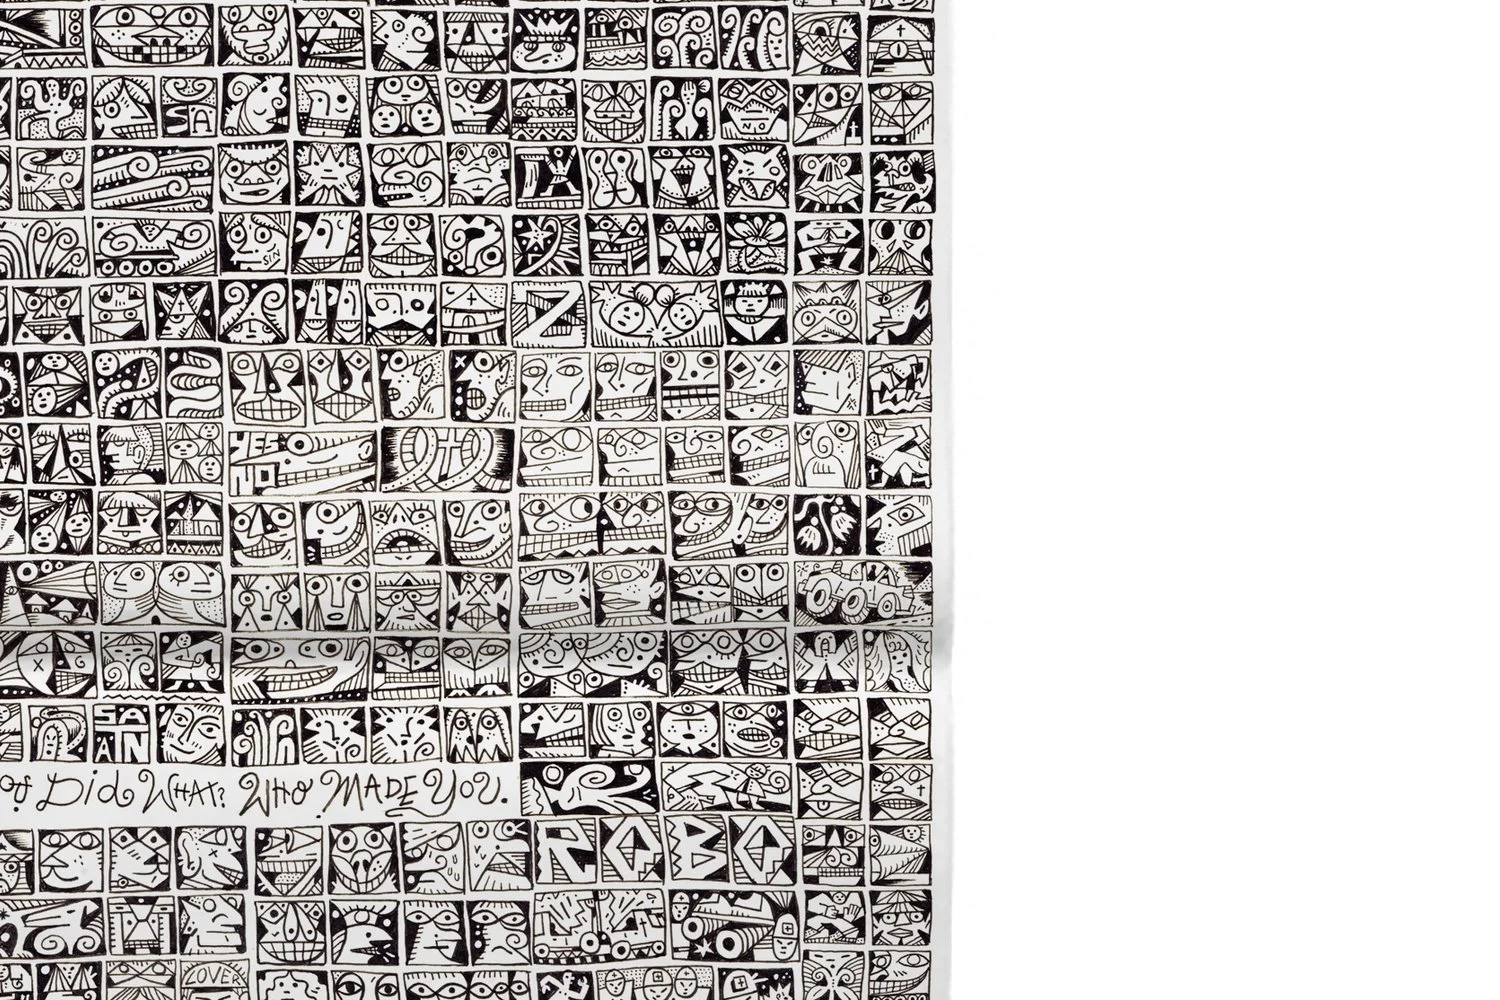 SA
NO
SIN
?
Z
YES
NO
SA
AN
Did WHAT? WHO MADE YOU.
ROBO
LOVER